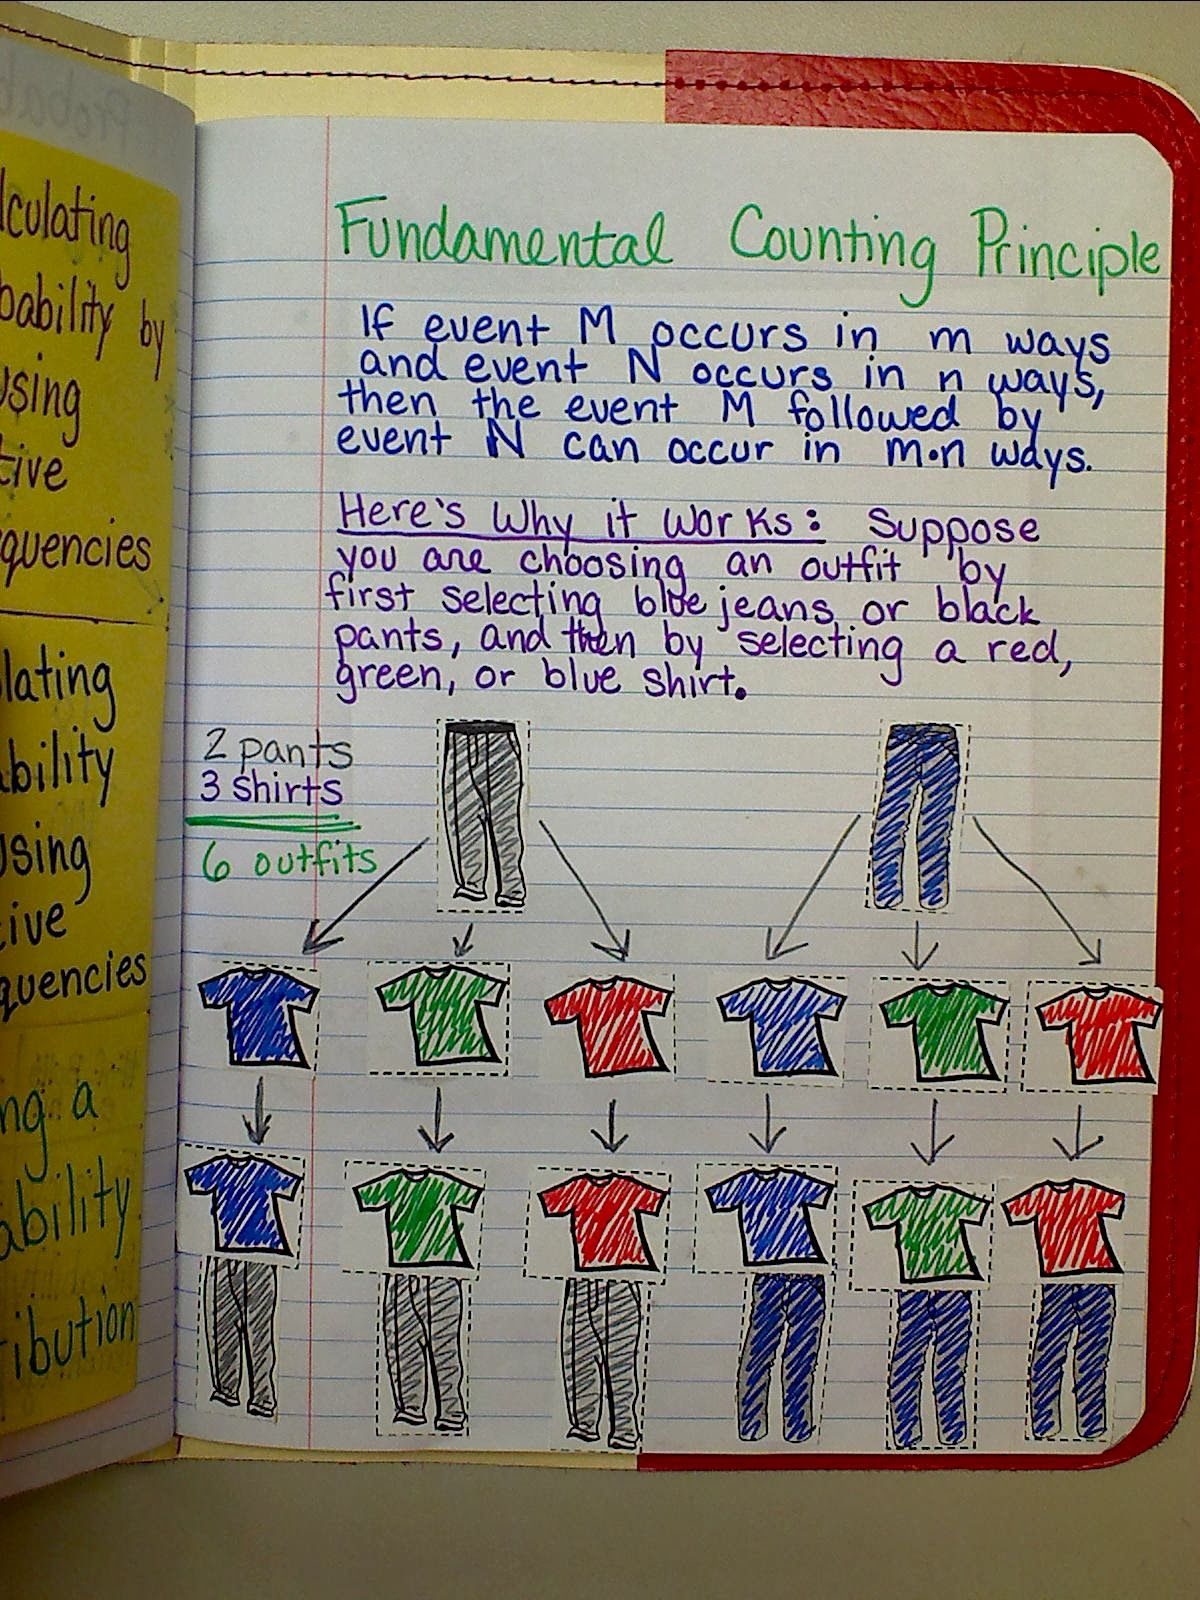 lculating
bability by
using
tive
quencies
lating
ability
using
tive
quencies
ng a
ability
ibution
Fundamental Counting Principle
If event M occurs in m ways
and event N occurs in n ways,
then the event M followed by
event N can occur in m•n ways.
Here's Why it Works: Suppose
you are choosing an outfit by
first selecting blue jeans or black
pants, and then by selecting a red,
green, or blue shirt.
2 pants
3 shirts
6 outfits